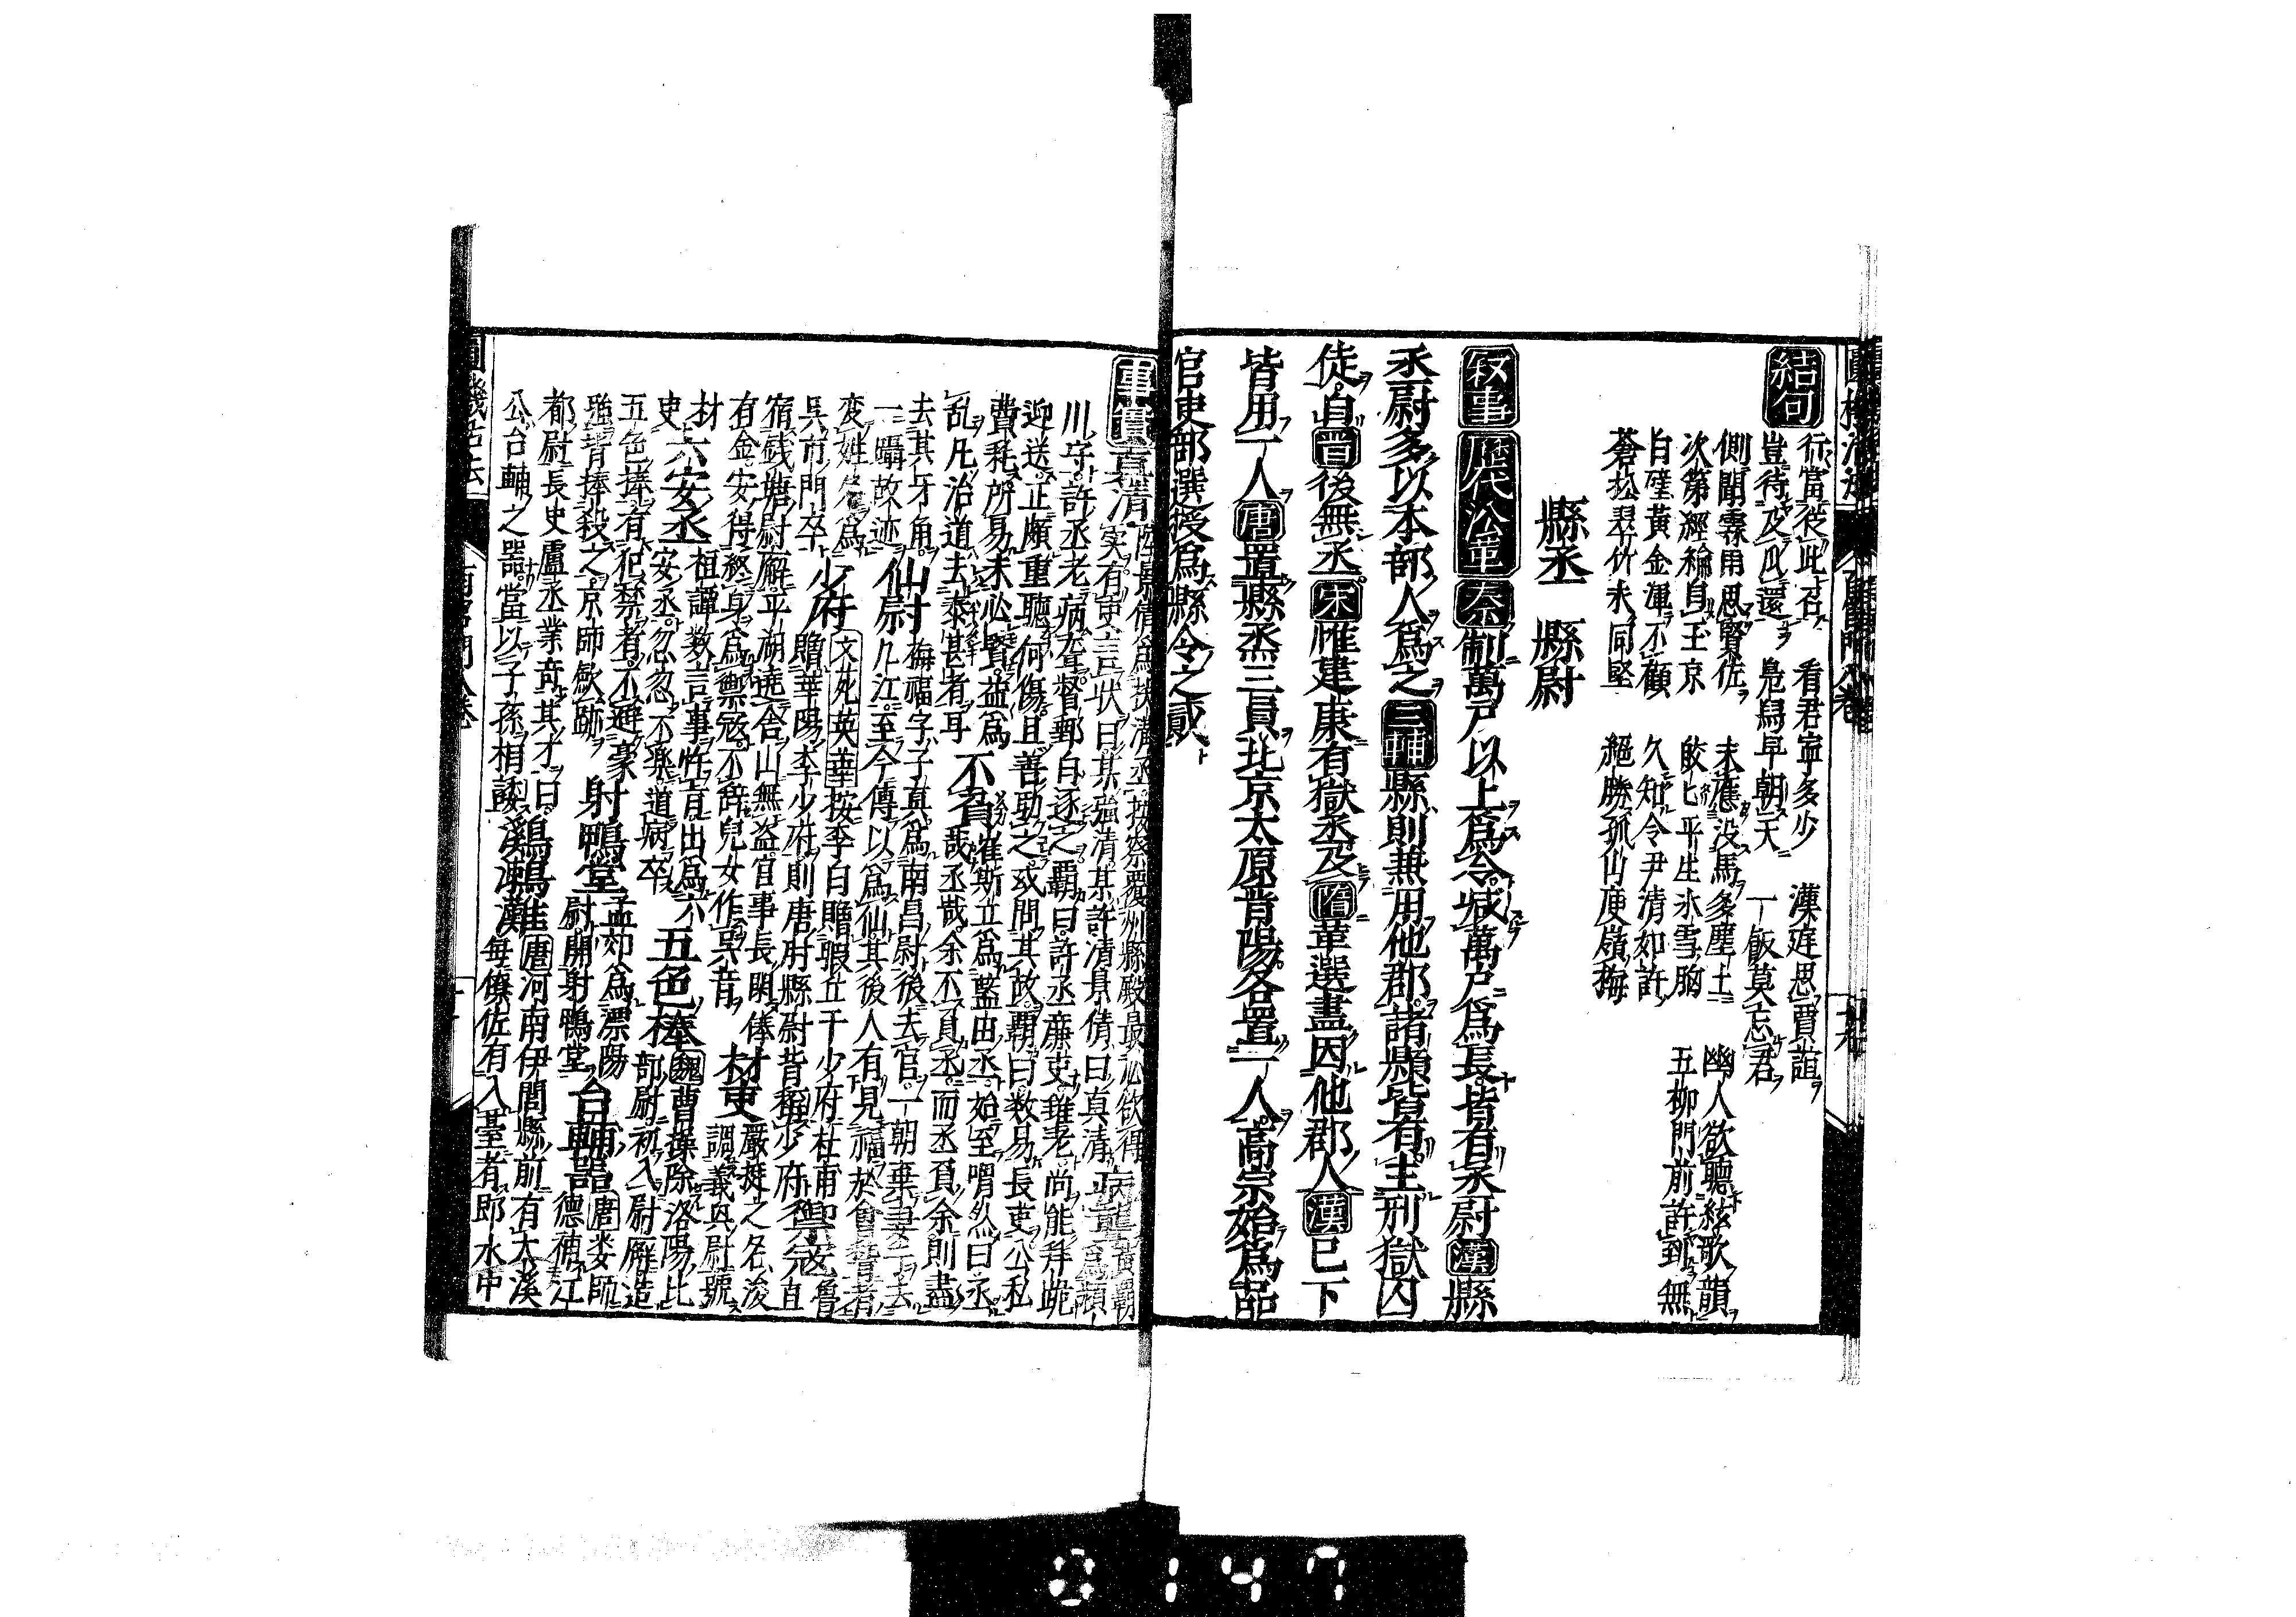 結句
行當從此召 看君寧多少 漢庭思賈誼
豈待及瓜還 鳧舄早朝天 一飯莫忘君
側聞霖雨思賢佐 未應没馬多塵土 幽人欲聽絃歌韻
次第經綸自玉京 皎七平生氷雪胸 五柳門前許到無
白璧黃金渾不顧 久知令尹清如許
蒼松翠竹未同堅 絕勝孤山庾嶺梅
縣丞 縣尉
叙事 歷代沿革 秦制萬戸以上爲令減萬戸爲長皆有丞尉漢縣
丞尉多以本部人爲之三輔縣則兼用他郡諸縣皆有主刑獄囚
徒自晉後無丞宋惟建康有獄丞及隋革選盡因他郡人漢已下
皆用一人唐置縣丞三員北京太原晉陽各置一人高宗始爲品
官吏部選授爲縣令之貳
事實 真清 爲扶溝丞按察覆州縣殿最必欲得 病聾 黃霸
実有吏言状曰某強清某許清㒯倩曰真清 爲頴
川守許丞老病聾督郵白逐之霸曰許丞廉吏雖老尚能拜跪
迎送正頗重聽何傷且善助之或問其故霸曰数易長吏公私
費耗所易未必賢益爲 不負 崔斯立爲藍田丞始至喟然曰丞
乱凡治道去泰甚者耳 哉丞哉余不負丞而丞負余則盡
去其牙角 仙尉 梅福字子真爲南昌尉後去官一朝棄妻子去
一躡故迹 九江至今傳以爲仙其後人有見福於會稽者
変姓名爲 少府 文苑英華按李白贈瑕丘干少府杜甫
呉市門卒 贈華陽李少府則唐时縣尉皆稱少府 禦寇 安魯直
宿銭塘尉廨平湖遶舍山無盗官事長閑俸 材吏 嚴挺之名浚
有金安得終身爲禦寇不辞兒女作呉音 調義興尉號
材 六安丞 桓譚数言事忤旨出爲六 五色棒 魏曹操除洛陽北
吏 安丞忽忽不楽道病卒 部尉初入尉廨造
五色棒有犯禁者不避豪 射鴨堂 孟郊爲溧陽 台輔噐 唐娄師
強皆捧殺之京師歛跡 尉開射鴨堂 德補江
都尉長史盧丞業竒其才曰 鸂鶒灘 唐河南伊闕縣前有大溪
公台輔之噐當以子孫相諉 每僚佐有入臺者即水中
0147